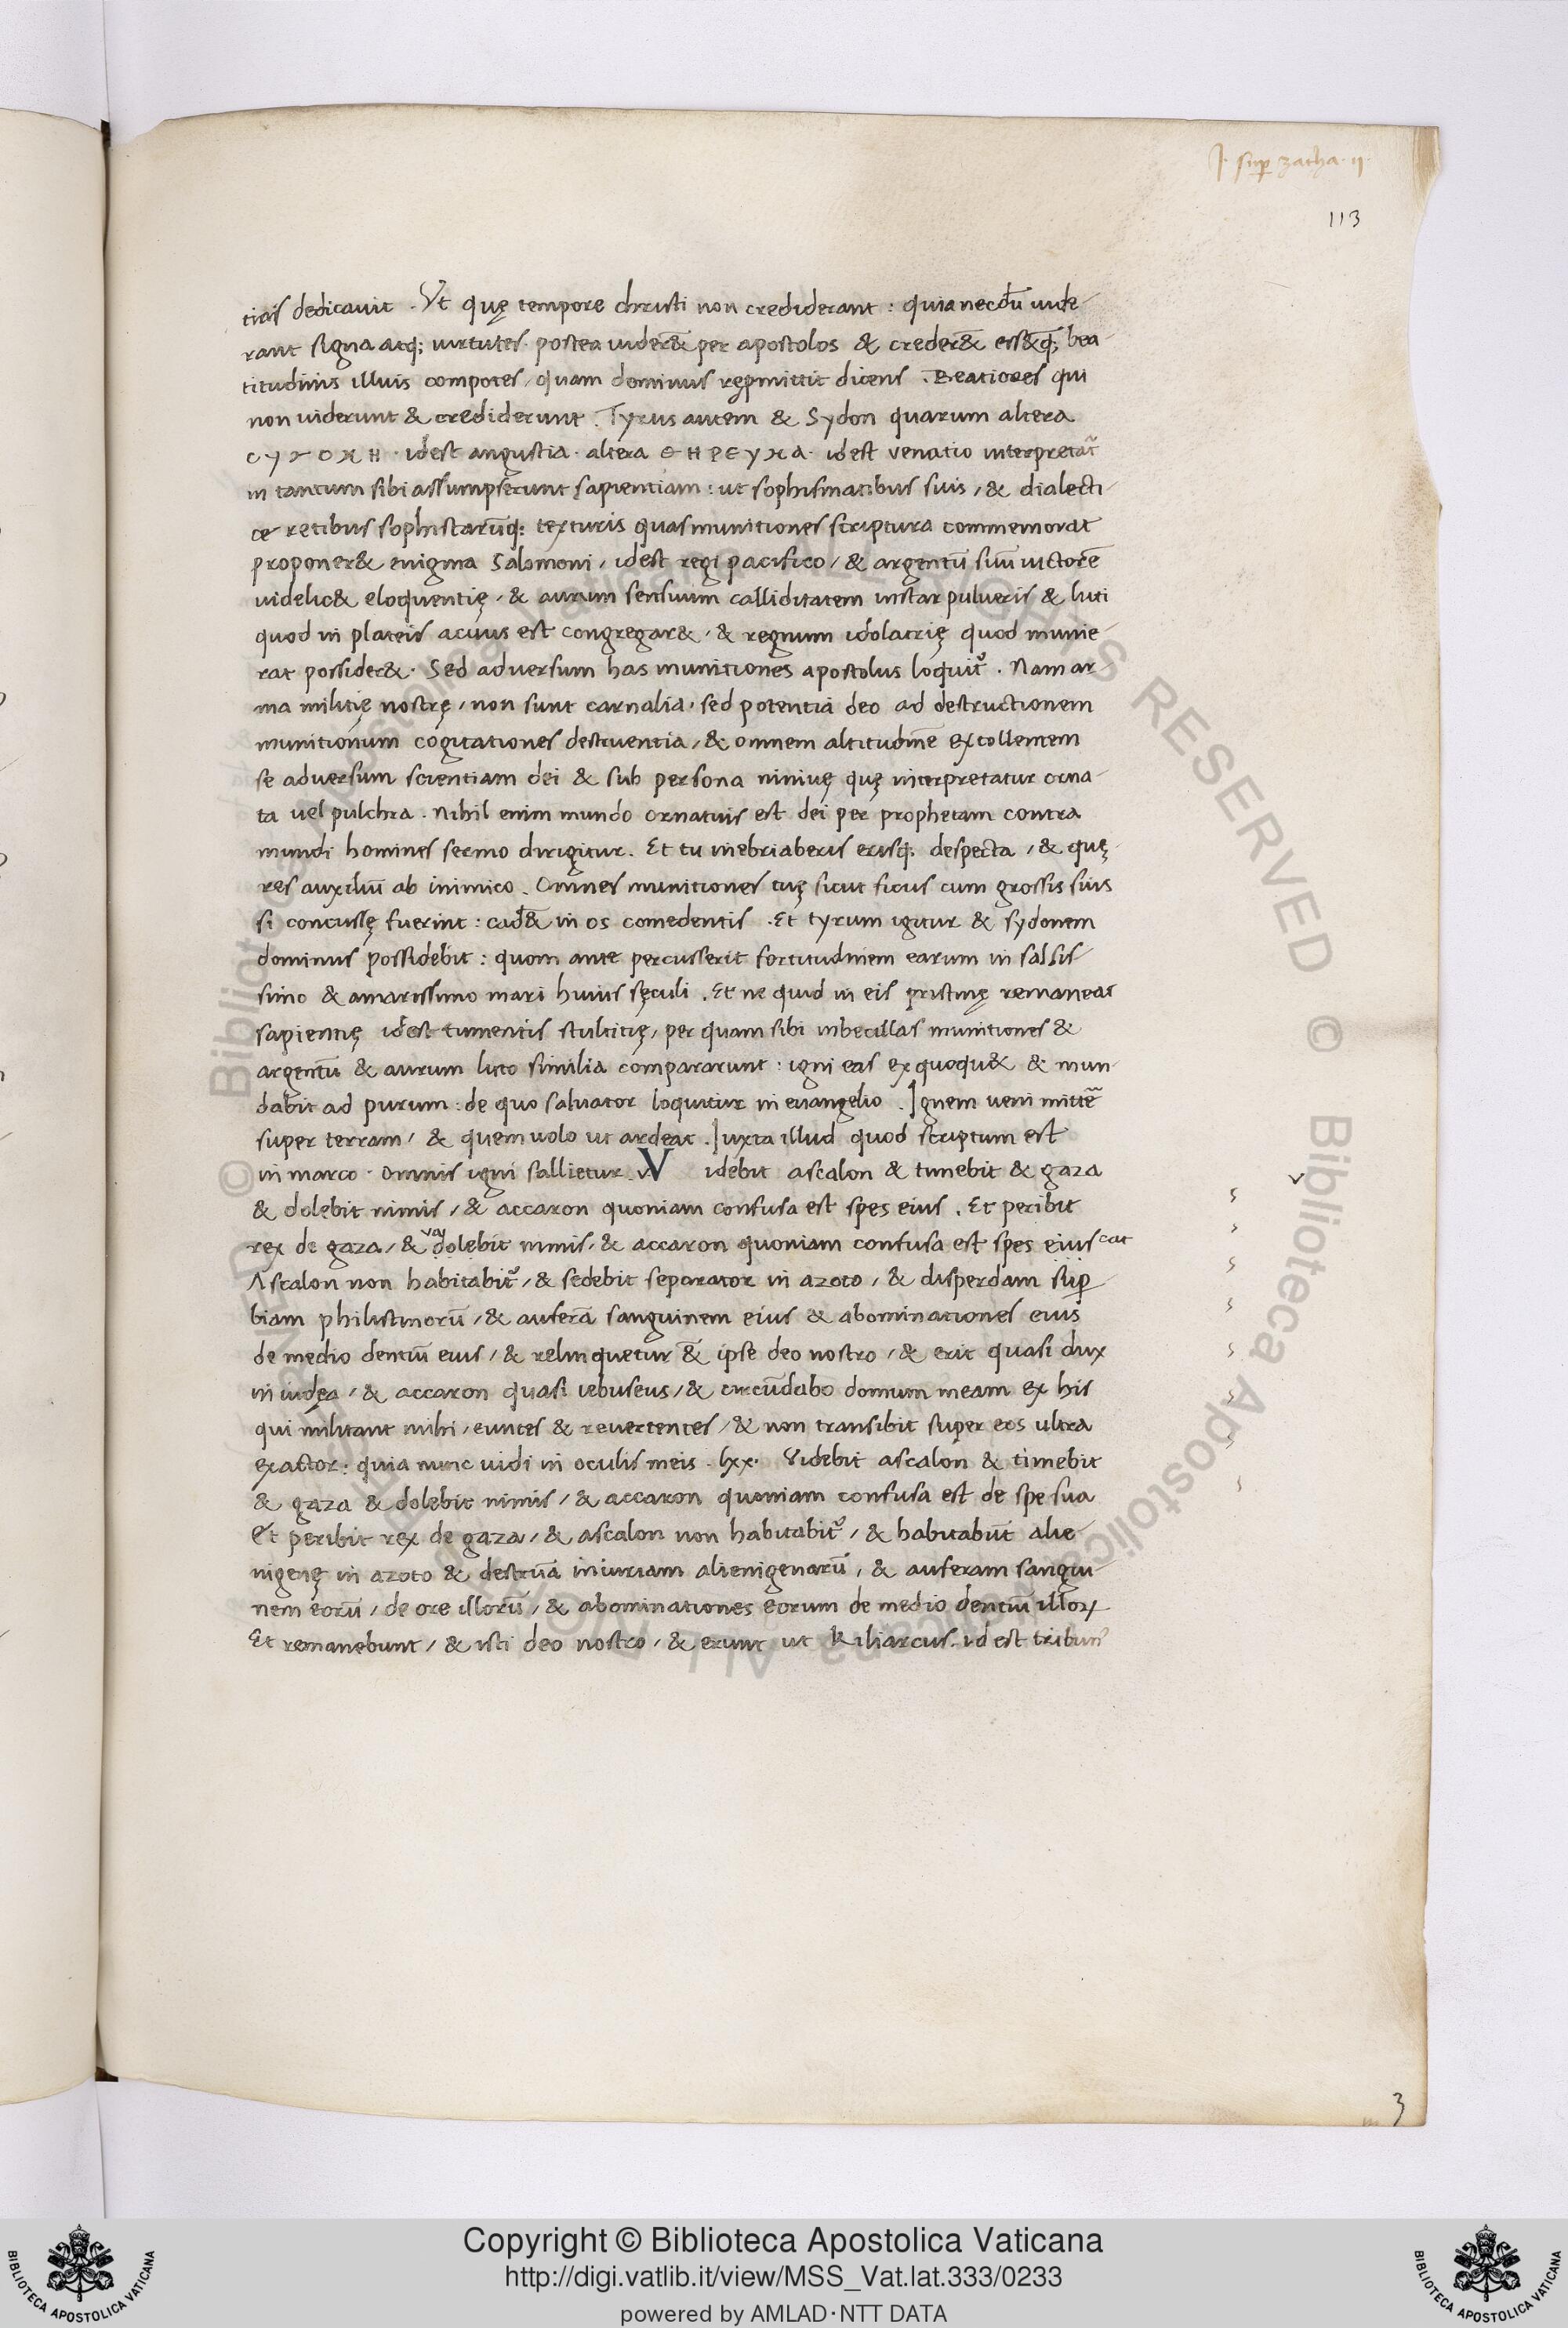 J. sup̄ zacha · ii ·
113
tias dedicavit . Vt quę tempore christi non crediderant : quia necdū uide-
rant signa atq; uirtutes · postea uider&̄ per apostolos & creder&̄ ess&q̄; bea-
titudinis illius compotes / quam dominus repmittit dicens . Beatiores qui
non uiderunt & crediderunt . Tyrus autem & Sydon quarum altera
CΥΝΟΧΗ · idest angustia · altera ΘΗΡΕΥΜΑ · idest venatio interpretat̄
in tantum sibi assumpserunt sapientiam : ut sophismatibus suis / & dialecti-
ce retibus sophistarūq; texturis quas munitiones scriptura commemorat
proponer& enigma Salomoni / idest regi pacifico / & argentū suū uictorē
uidelic& eloquentię / & aurum sensuum calliditatem instar pulueris & luti
quod in plateis acuus est congregar& / & regnum idolatrię quod munie-
rat possider& · Sed adversum has munitiones apostolus loquit᷑ . Nam ar-
ma militię nostrę / non sunt carnalia / sed potentia deo ad destructionem
munitionum cogitationes destruentia / & omnem altitudinē extollentem
se adversum scientiam dei & sub persona niniuę quę interpretatur orna-
ta vel pulchra . Nihil enim mundo ornatuis est dei per prophetam contra
mundi homines sermo dirigitur . Et tu inebriaberis erisq; despecta / & quę-
res auxiliū ab inimico . Omnes munitiones tuę sicut ficus cum grossis suis
si concussę fuerint : cad&̄ in os comedentis . Et tyrum igitur & sydonem
dominus possidebit : quom ante percusserit fortitudinem earum in salsis-
simo & amarissimo mari huius sęculi . Et ne quid in eis pristinę remaneat
sapientię idest tumentis stultitię / per quam sibi inbecillas munitiones &
argentū & aurum luto similia compararunt : igni eas exquoqu& & mun-
dabit ad purum : de quo saluator loquitur in euangelio . Ignem ueni mittē̄
super terram / & quem uolo ut ardeat . Iuxta illud quod scriptum est
in marco · Omnis igni sallietur . V idebit ascalon & timebit & gaza
& dolebit nimis / & accaron quoniam confusa est spes eius . Et peribit
rex de gaza / & va dolebit nimis / & accaron quoniam confusa est spes eius cat
Ascalon non habitabit᷑ / & sedebit separator in azoto / & disperdam sup̄-
biam philistinorū / & auferā sanguinem eius & abominationes eius
de medio dentiū eius / & relinquetur &̄ ipse deo nostro / & erit quasi dux
in iudęa / & accaron quasi iebuseus / & circūdabo domum meam ex his
qui militant mihi / euntes & revertentes / & non transibit super eos ultra
exactor : quia nunc uidi in oculis meis . lxx · Videbit ascalon & timebit
& gaza & dolebit nimis / & accaron quoniam confusa est de spe sua
Et peribit rex de gaza / & ascalon non habitabit᷑ / & habitabūt alie-
nigenę in azoto & destruā iniuriam alienigenarū / & auferam sangui-
nem eorū / de ore illorū / & abominationes eorum de medio dentiū illoꝝ
Et remanebunt / & isti deo nostro / & erunt ut kiliarcus . idest tribun᷒
3
Copyright © Biblioteca Apostolica Vaticana
http://digi.vatlib.it/view/MSS_Vat.lat.333/0233
powered by AMLAD·NTT DATA
BIBLIOTECA APOSTOLICA VATICANA
BIBLIOTECA APOSTOLICA VATICANA